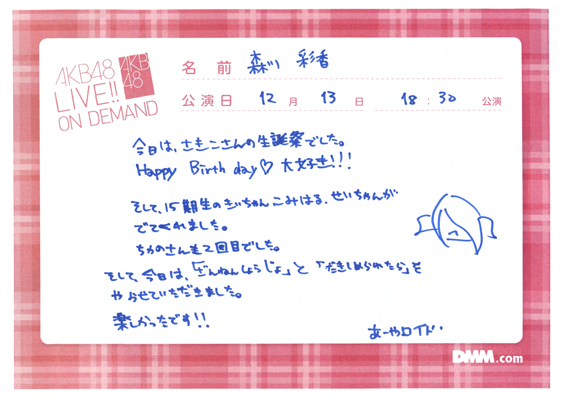 AKB48
LIVE!!
ON DEMAND
AKB
48
名 前 森川 彩香
公演日 12 月 13 日 18:30 公演
今日は、さもこさんの生誕祭でした。
Happy Birthday♡ 大好き!!!
そして、15期生のきいちゃん こみはる、せいちゃんが
でてくれました。
ちかのさんも2回目でした。
そして、今日は、「ざんねんしょうじょ」と「だきしめられたら」を
やらせていただきました。
楽しかったです!!
あーやロイド.
DMM.com